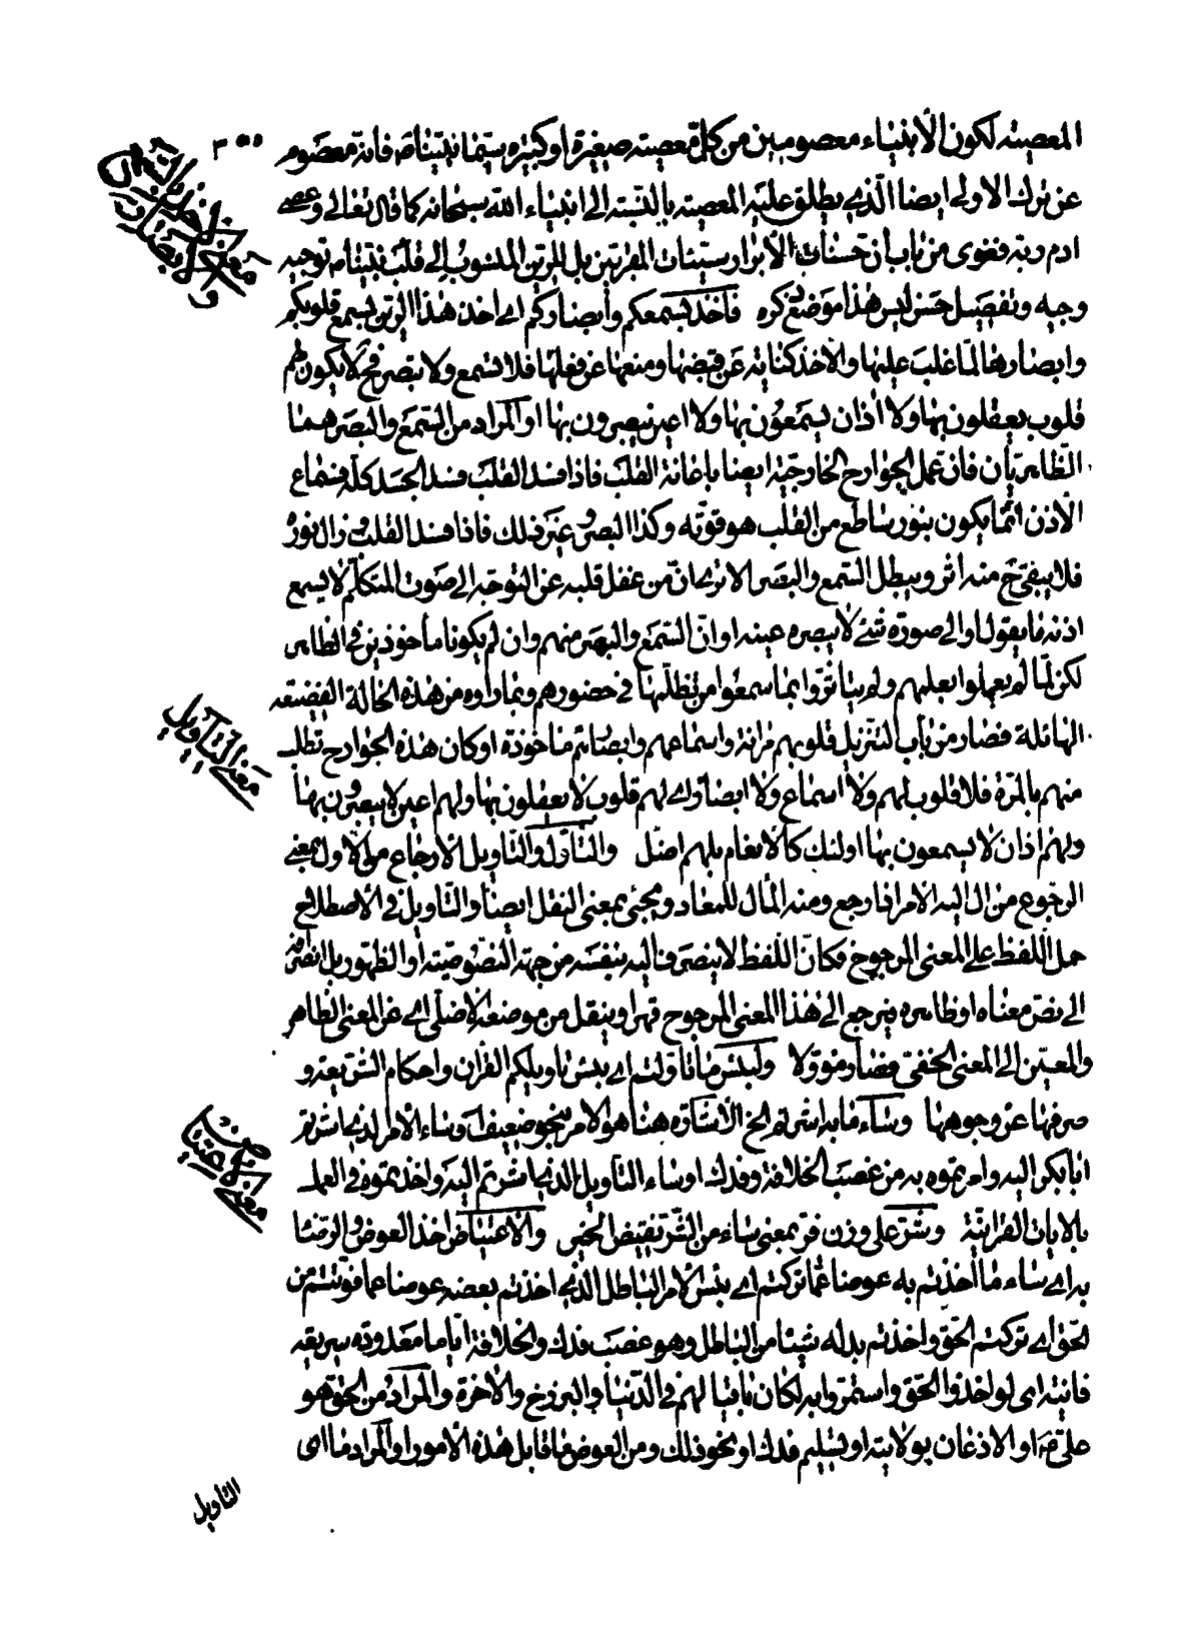 ٣٠٠
المعصية لكون الأنبياء معصومين من كل معصية صغيرة او كبيرة سيما نبينا ص فانه معصوم
عن ترك الاولى ايضا الذي يطلق عليه المعصية بالنسبة الى انبياء الله سبحانه كما قال تعالى وعصى
ادم ربه فغوى من باب ان حسنات الأبرار سيئات المقربين بل للرين المنسوب الى قلب نبينا ص توجيه
وجيه وتفصيل حسن ليس هذا موضع ذكره فأخذ بسمعكم وأبصاركم اى اخذ هذا الرين بسمع قلوبكم
وابصارها لما غلب عليها والأخذ كناية عن قبضها ومنعها عن فعلها فلا تسمع ولا تبصر فح لا يكون لهم
قلوب يعقلون بها ولا أذان يسمعون بها ولا اعين يبصرون بها او المراد من السمع والبصر همنا
الظاهريان فان عمل الجوارح الخارجية ايضا باعانة القلب فاذا فسد القلب فسد الجسد كله فسماع
الأذن انما يكون بنور ساطع من القلب هو قوته وكذا البصر وغير ذلك فاذا فسد القلب زال نوره
فلا يبقى ح منه اثر ويبطل السمع والبصر الا ترى ان من غفل قلبه عن التوجه الى صوت المتكلم لا يسمع
اذنه ما يقول او الى صورة شئ لا يبصره عينه او ان السمع والبصر منهم وان لم يكونا مأخوذين في الظاهر
لكن لما لم يعملوا بعلمهم ولم يتأثروا بما سمعوا من تظلمها في حضورهم وبما راوه من هذه الحالة الفضيعة
الهائلة فصار من باب التنزيل قلوبهم مرانة واسماعهم وابصارهم مأخوذة او كان هذه الجوارح تطلب
منهم بالمرة فلا قلوب لهم ولا اسماع ولا ابصار اى لهم قلوب لا يعقلون بها ولهم اعين لا يبصرون بها
ولهم اذان لا يسمعون بها اولئك كالأنعام بل هم اضل والتأول والتأويل الأرجاع من الأول بمعنى
الرجوع من ال اليه الأمر اذا رجع ومنه المأل للمعاد ويجئ بمعنى النقل ايضا والتأويل في الأصطلاح
حمل اللفظ على المعنى المرجوح فكان اللفظ لا ينصرف اليه بنفسه من جهة النصوصية او الظهور بل انصرافه
الى نص معناه او ظاهره فيرجع الى هذا المعنى المرجوح قهرا وينقل من موضعه الأصلى اى عن المعنى الظاهر
والمعين الى المعنى الخفى فصار مؤولا ولبئس ما تأولتم اى بئس تأويلكم القران واحكام الشريعة و
صرفها عن وجوهها وساء ما به اشرتم الخ الأشارة هنا هو الأمر بنحو ضعيف وساء الأمر الذي اشرتم
ابابكر اليه وامرتموه به من غصب الخلافة وفدك او ساء التأويل الذي اشرتم اليه واخذتموه في العمل
بالايات القرانية وشر على وزن فر بمعنى ساء من الشر نقيض الخير والأعتياض اخذ العوض والرضا
به اى ساء ما أخذتم به عوضا عما تركتم اى بئس الأمر الباطل الذي اخذتم بعضه عوضا عما فوتتم من
الحق اى تركتم الحق واخذتم بدله شيئا من الباطل وهو غصب فدك والخلافة اياما معدودة سريعة
فانية اى لو اخذوا الحق واستمروا به لكان باقيا لهم في الدنيا والبرزخ والأخرة والمراد من الحق هو
على ص او الاذعان بولايته او تسليم فدك او نحو ذلك ومن العوض ما قابل هذه الأمور او المراد ما اى
التأويل
معنى التأويل